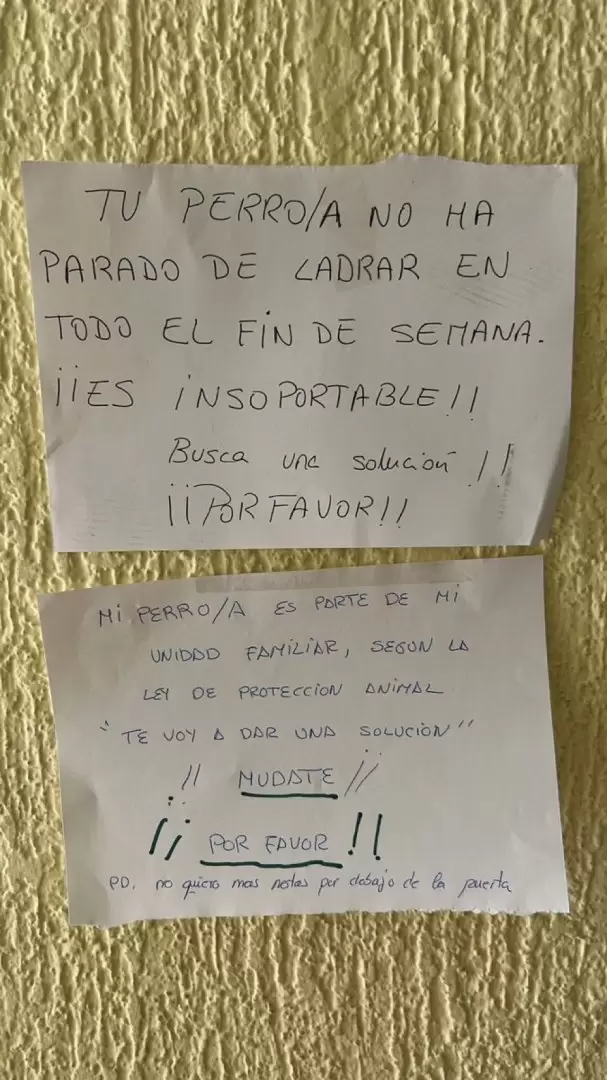 TU PERRO/A NO HA
PARADO DE LADRAR EN
TODO EL FIN DE SEMANA.
¡¡ES INSOPORTABLE!!
Busca una solución !!
¡¡POR FAVOR!!
MI PERRO/A ES PARTE DE MI
UNIDAD FAMILIAR, SEGUN LA
LEY DE PROTECCION ANIMAL
"TE VOY A DAR UNA SOLUCIÓN"
!! MUDATE !!
¡¡ POR FAVOR !!
PD. no quiero mas notas por debajo de la puerta